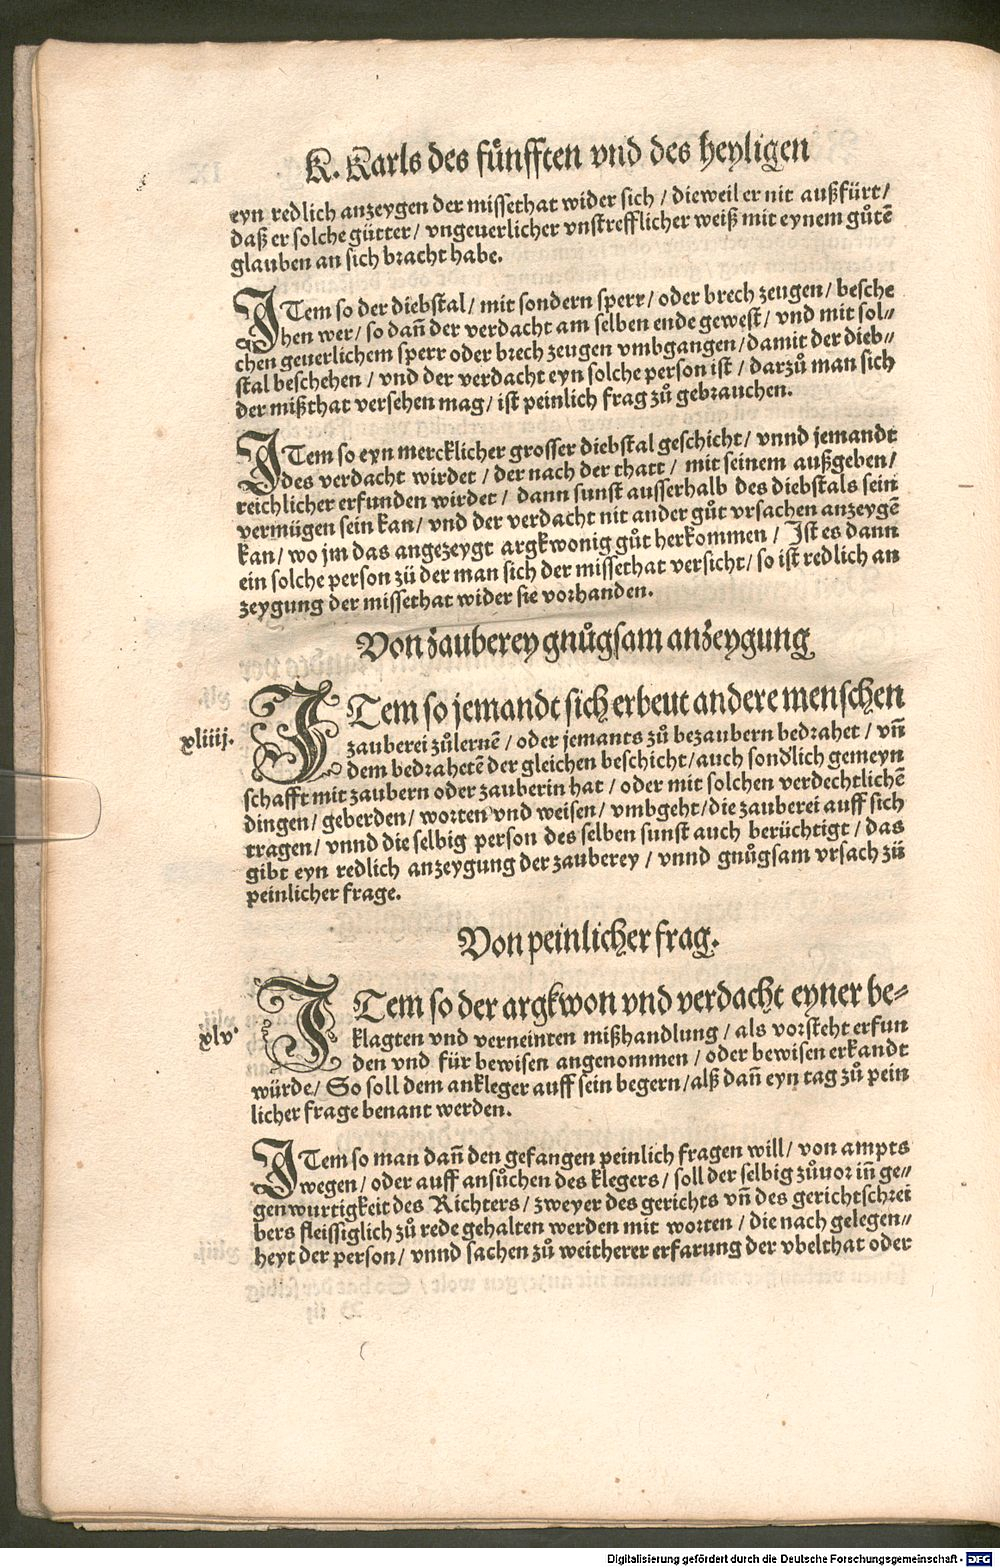 K. Karls des fünfften vnd des heyligen
eyn redlich anzeygen der missethat wider sich / dieweil er nit außfürt /
daß er solche gütter / vngeuerlicher vnstrefflicher weiß mit eynem gůtē
glauben an sich bracht habe.
ITem so der diebstal / mit sondern sperr / oder brech zeugen / besche
hen wer / so dañ der verdacht am selben ende gewest / vnd mit sol⸗
chen geuerlichem sperr oder brech zeugen vmbgangen / damit der dieb⸗
stal beschehen / vnd der verdacht eyn solche person ist / darzů man sich
der mißthat versehen mag / ist peinlich frag zů gebrauchen.
ITem so eyn mercklicher grosser diebstal geschicht / vnnd jemandt
des verdacht wirdet / der nach der thatt / mit seinem außgeben /
reichlicher erfunden wirdet / dann sunst ausserhalb des diebstals sein
vermügen sein kan / vnd der verdacht nit ander gůt vrsachen anzeygē
kan / wo jm das angezeygt argkwonig gůt herkommen / Ist es dann
ein solche person zü der man sich der missethat versicht / so ist redlich an
zeygung der missethat wider sie vorhanden.
Von zauberey gnůgsam anzeygung
xliiij.
ITem so jemandt sich erbeut andere menschen
zauberei zůlernē / oder jemants zů bezaubern bedrahet / vñ
dem bedrahetē der gleichen beschicht / auch sondlich gemeyn
schafft mit zaubern oder zauberin hat / oder mit solchen verdechtlichē
dingen / geberden / worten vnd weisen / vmbgeht / die zauberei auff sich
tragen / vnnd die selbig person des selben sunst auch berüchtigt / das
gibt eyn redlich anzeygung der zauberey / vnnd gnůgsam vrsach zü
peinlicher frage.
Von peinlicher frag.
xlv
ITem so der argkwon vnd verdacht eyner be⸗
klagten vnd verneinten mißhandlung / als vorsteht erfun
den vnd für bewisen angenommen / oder bewisen erkandt
würde / So soll dem ankleger auff sein begern / alß dañ eyn tag zů pein
licher frage benant werden.
ITem so man dañ den gefangen peinlich fragen will / von ampts
wegen / oder auff ansůchen des klegers / soll der selbig zůuor iñ ge⸗
genwurtigkeit des Richters / zweyer des gerichts vñ des gerichtschrei
bers fleissiglich zů rede gehalten werden mit worten / die nach gelegen⸗
heyt der person / vnnd sachen zů weitherer erfarung der vbelthat oder
Digitalisierung gefördert durch die Deutsche Forschungsgemeinschaft - DFG